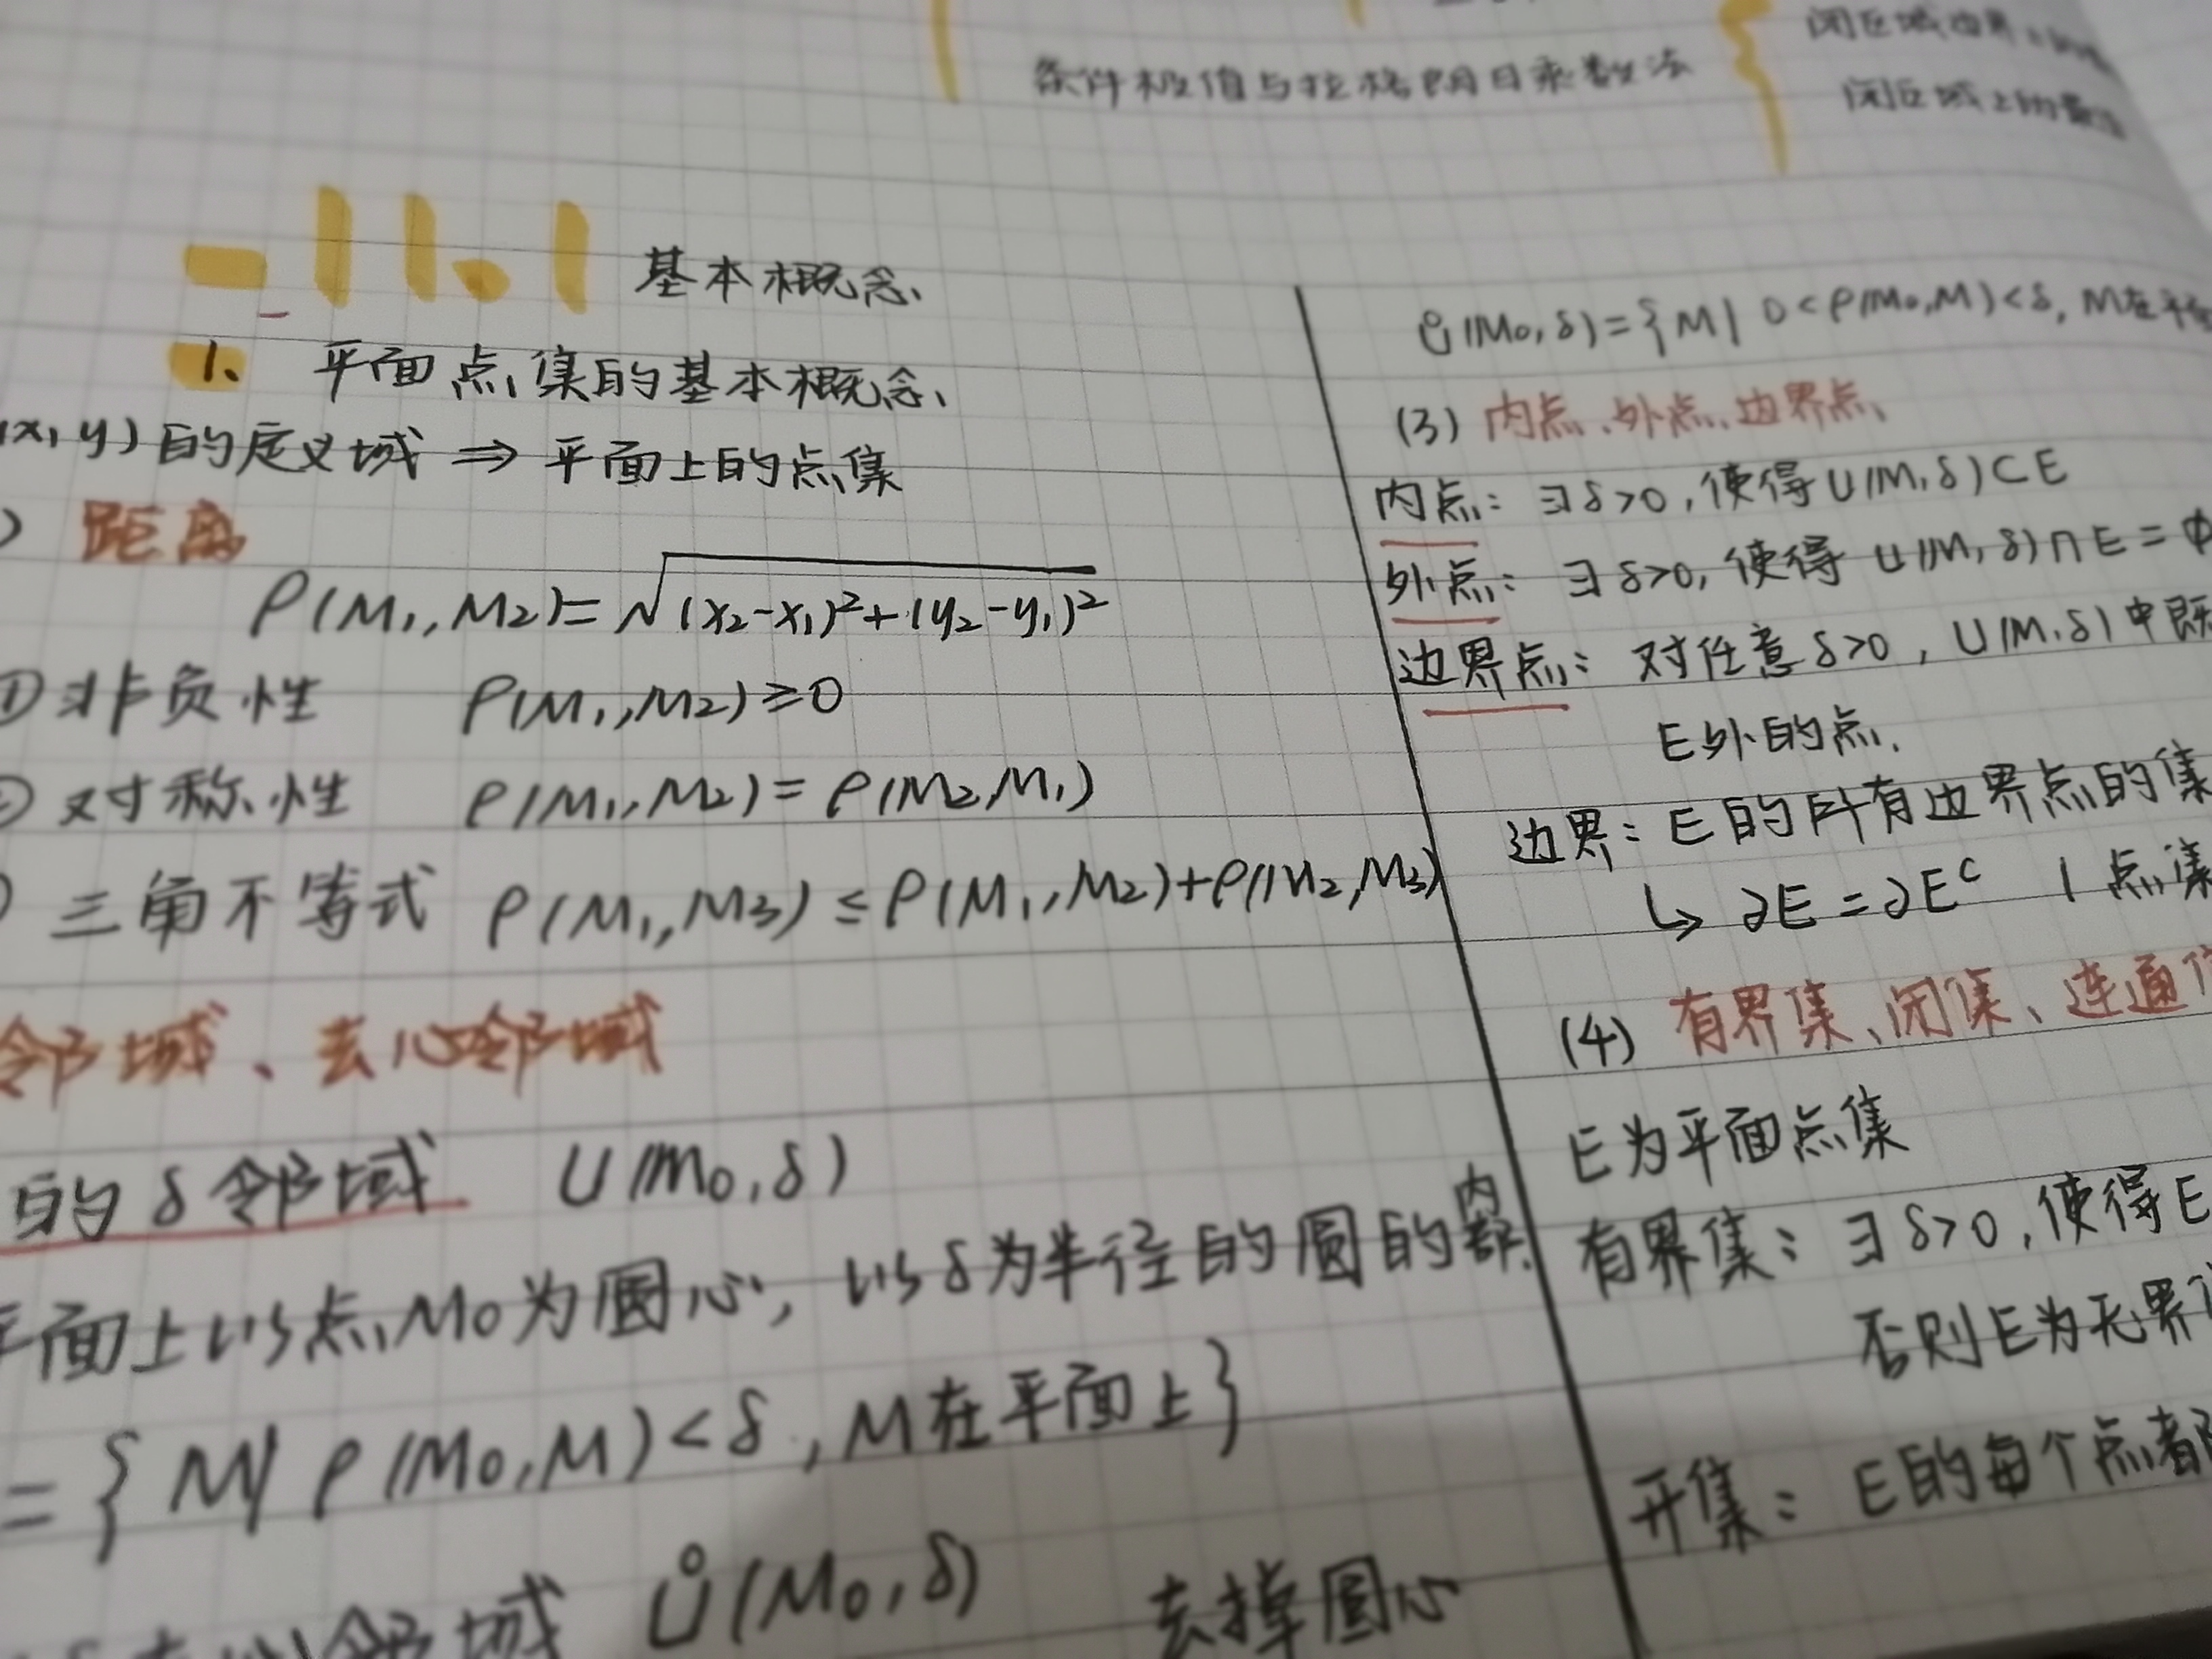 条件极值与拉格朗日乘数法
闭区域
闭区域上的最值
11.1 基本概念
1、 平面点集的基本概念
(x,y)的定义域 ⇒ 平面上的点集
) 距离
ρ(M₁,M₂)=√(x₂-x₁)²+(y₂-y₁)²
① 非负性 ρ(M₁,M₂)≥0
② 对称性 ρ(M₁,M₂)=ρ(M₂,M₁)
) 三角不等式 ρ(M₁,M₃)≤ρ(M₁,M₂)+ρ(M₂,M₃)
邻域、去心邻域
的δ邻域 U(M₀,δ)
平面上以点M₀为圆心,以δ为半径的圆的内部.
={M|ρ(M₀,M)<δ,M在平面上}
去心邻域 Ů(M₀,δ) 去掉圆心
Ů(M₀,δ)={M|0<ρ(M₀,M)<δ,M在平
(3) 内点、外点、边界点
内点:∃δ>0,使得U(M,δ)⊂E
外点:∃δ>0,使得U(M,δ)∩E=φ
边界点:对任意δ>0,U(M,δ)中既
E外的点.
边界:E的所有边界点的集
↳ ∂E=∂Eᶜ (点集
(4) 有界集、闭集、连通
E为平面点集
有界集:∃δ>0,使得E
否则E为无界
开集:E的每个点都